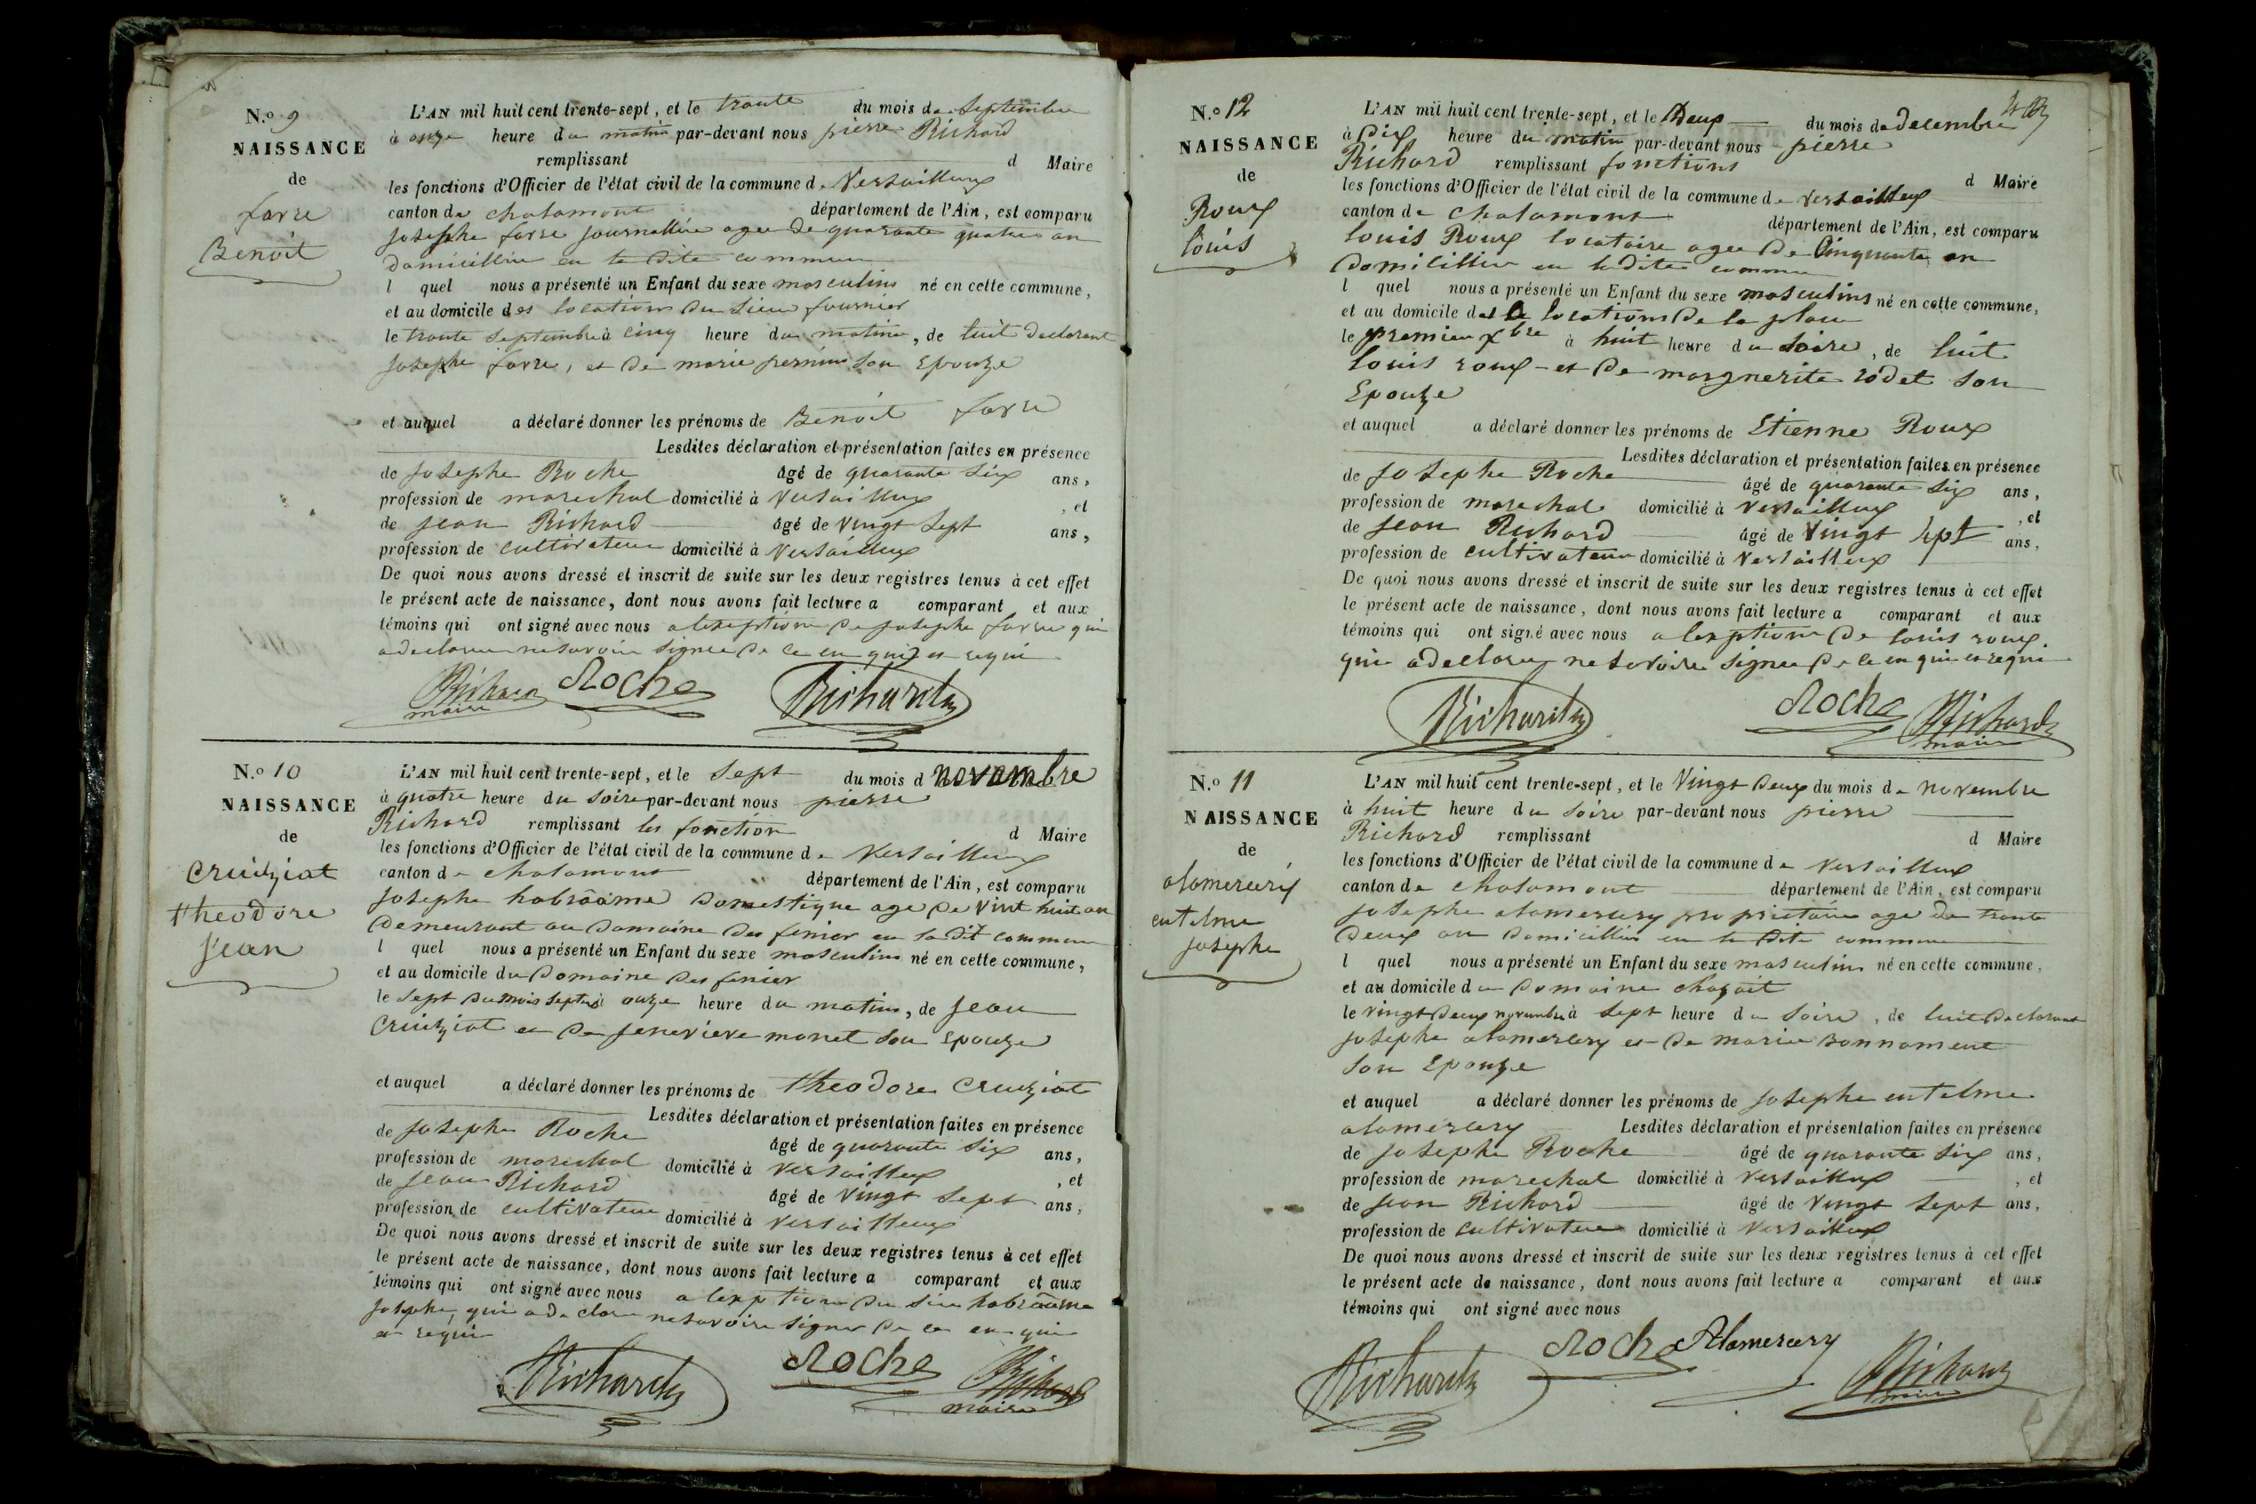 N.o 9
NAISSANCE
de
favre
Benoit
L'AN mil huit cent trente-sept, et le trante du mois de Septembre
à onze heure du matin par-devant nous pierre Richard
remplissant d Maire
les fonctions d'Officier de l'état civil de la commune de Versailleux
canton de chalamont département de l'Ain, est comparu
Josephe favre journallier agee de quarante quatre an
domicillier en la dite commune
l quel nous a présenté un Enfant du sexe masculins né en cette commune,
et au domicile des locations du sieur fournier
le trante septembre à cinq heure du matins, de luit declarant
josephe favre, et de marie perrins son Epouze
et auquel a déclaré donner les prénoms de Benoit favre
Lesdites déclaration et présentation faites en présence
de Josephe Roche âgé de quarante six ans,
profession de marechal domicilié à versailleux , et
de jean Richard âgé de vingt sept ans,
profession de cultivateur domicilié à versailleux
De quoi nous avons dressé et inscrit de suite sur les deux registres tenus à cet effet
le présent acte de naissance, dont nous avons fait lecture a comparant et aux
témoins qui ont signé avec nous a lexseption de josephe favre qui
a declarer ne savoir signer de ce en qui et requi
Richard Roche Richard
maire
N.o 10
NAISSANCE
de
Cruiziat
theodore
jean
L'AN mil huit cent trente-sept, et le sept du mois d novambre
à quatre heure du soire par-devant nous pierre
Richard remplissant les fonction d Maire
les fonctions d'Officier de l'état civil de la commune de Versailleux
canton de chalamont département de l'Ain, est comparu
josephe habraâme domestique age de vint huit an
demeurant au domaine des fenier en la dit commune
l quel nous a présenté un Enfant du sexe masculins né en cette commune,
et au domicile du domaine des fenier
le sept du mois à onze heure du matins, de jean
Cruiziat et de jenevieve monet son Epouze
et auquel a déclaré donner les prénoms de theodore Cruiziat
Lesdites déclaration et présentation faites en présence
de josephe Roche âgé de quarante six ans,
profession de marechal domicilié à versailleux , et
de jean Richard âgé de vingt sept ans,
profession de cultivateur domicilié à versailleux
De quoi nous avons dressé et inscrit de suite sur les deux registres tenus à cet effet
le présent acte de naissance, dont nous avons fait lecture a comparant et aux
témoins qui ont signé avec nous a lexption du sieur habraâme
josephe, qui a declare ne savoire signer de ce en qui
et requi
Richard Roche Richard
maire
N.o 12
NAISSANCE
de
Roux
louis
L'AN mil huit cent trente-sept, et le Deux du mois de decembre
à Dix heure du matin par-devant nous pierre
Richard remplissant fonctions d Maire
les fonctions d'Officier de l'état civil de la commune de versailleux
canton de chalamont département de l'Ain, est comparu
louis Roux locataire agee de Cinquante an
domicillier en la dite commune
l quel nous a présenté un Enfant du sexe masculins né en cette commune,
et au domicile des locations de la place
le premier xbre à huit heure du soire, de luit
louis roux et de marguerite rodet son
Epouze
et auquel a déclaré donner les prénoms de Etienne Roux
Lesdites déclaration et présentation faites en présence
de Josephe Roche âgé de quarante six ans,
profession de marechal domicilié à versailleux , et
de jean Richard âgé de vingt sept ans,
profession de cultivateur domicilié à versailleux
De quoi nous avons dressé et inscrit de suite sur les deux registres tenus à cet effet
le présent acte de naissance, dont nous avons fait lecture a comparant et aux
témoins qui ont signé avec nous a lexption de louis roux
qui a declarer ne savoire signer de ce en qui et requi
Richard Roche Richard
maire
N.o 11
NAISSANCE
de
alamercery
entelme
josephe
L'AN mil huit cent trente-sept, et le Vingt deux du mois de novembre
à huit heure du soire par-devant nous pierre
Richard remplissant d Maire
les fonctions d'Officier de l'état civil de la commune de Versailleux
canton de chalamont département de l'Ain, est comparu
josephe alamercery propriétaire age de trante
deux an domicillier en la dite commune
l quel nous a présenté un Enfant du sexe masculin né en cette commune,
et au domicile du domaine
le vingt deux novembre à sept heure du soire, de luit declarant
josephe alamercery et de marie bonnament
son Epouze
et auquel a déclaré donner les prénoms de josephe entelme
alamercery Lesdites déclaration et présentation faites en présence
de josephe Roche âgé de quarante six ans,
profession de marechal domicilié à versailleux , et
de jean Richard âgé de vingt sept ans,
profession de cultivateur domicilié à versailleux
De quoi nous avons dressé et inscrit de suite sur les deux registres tenus à cet effet
le présent acte de naissance, dont nous avons fait lecture a comparant et aux
témoins qui ont signé avec nous
Richard Roche Alamercery Richard
maire